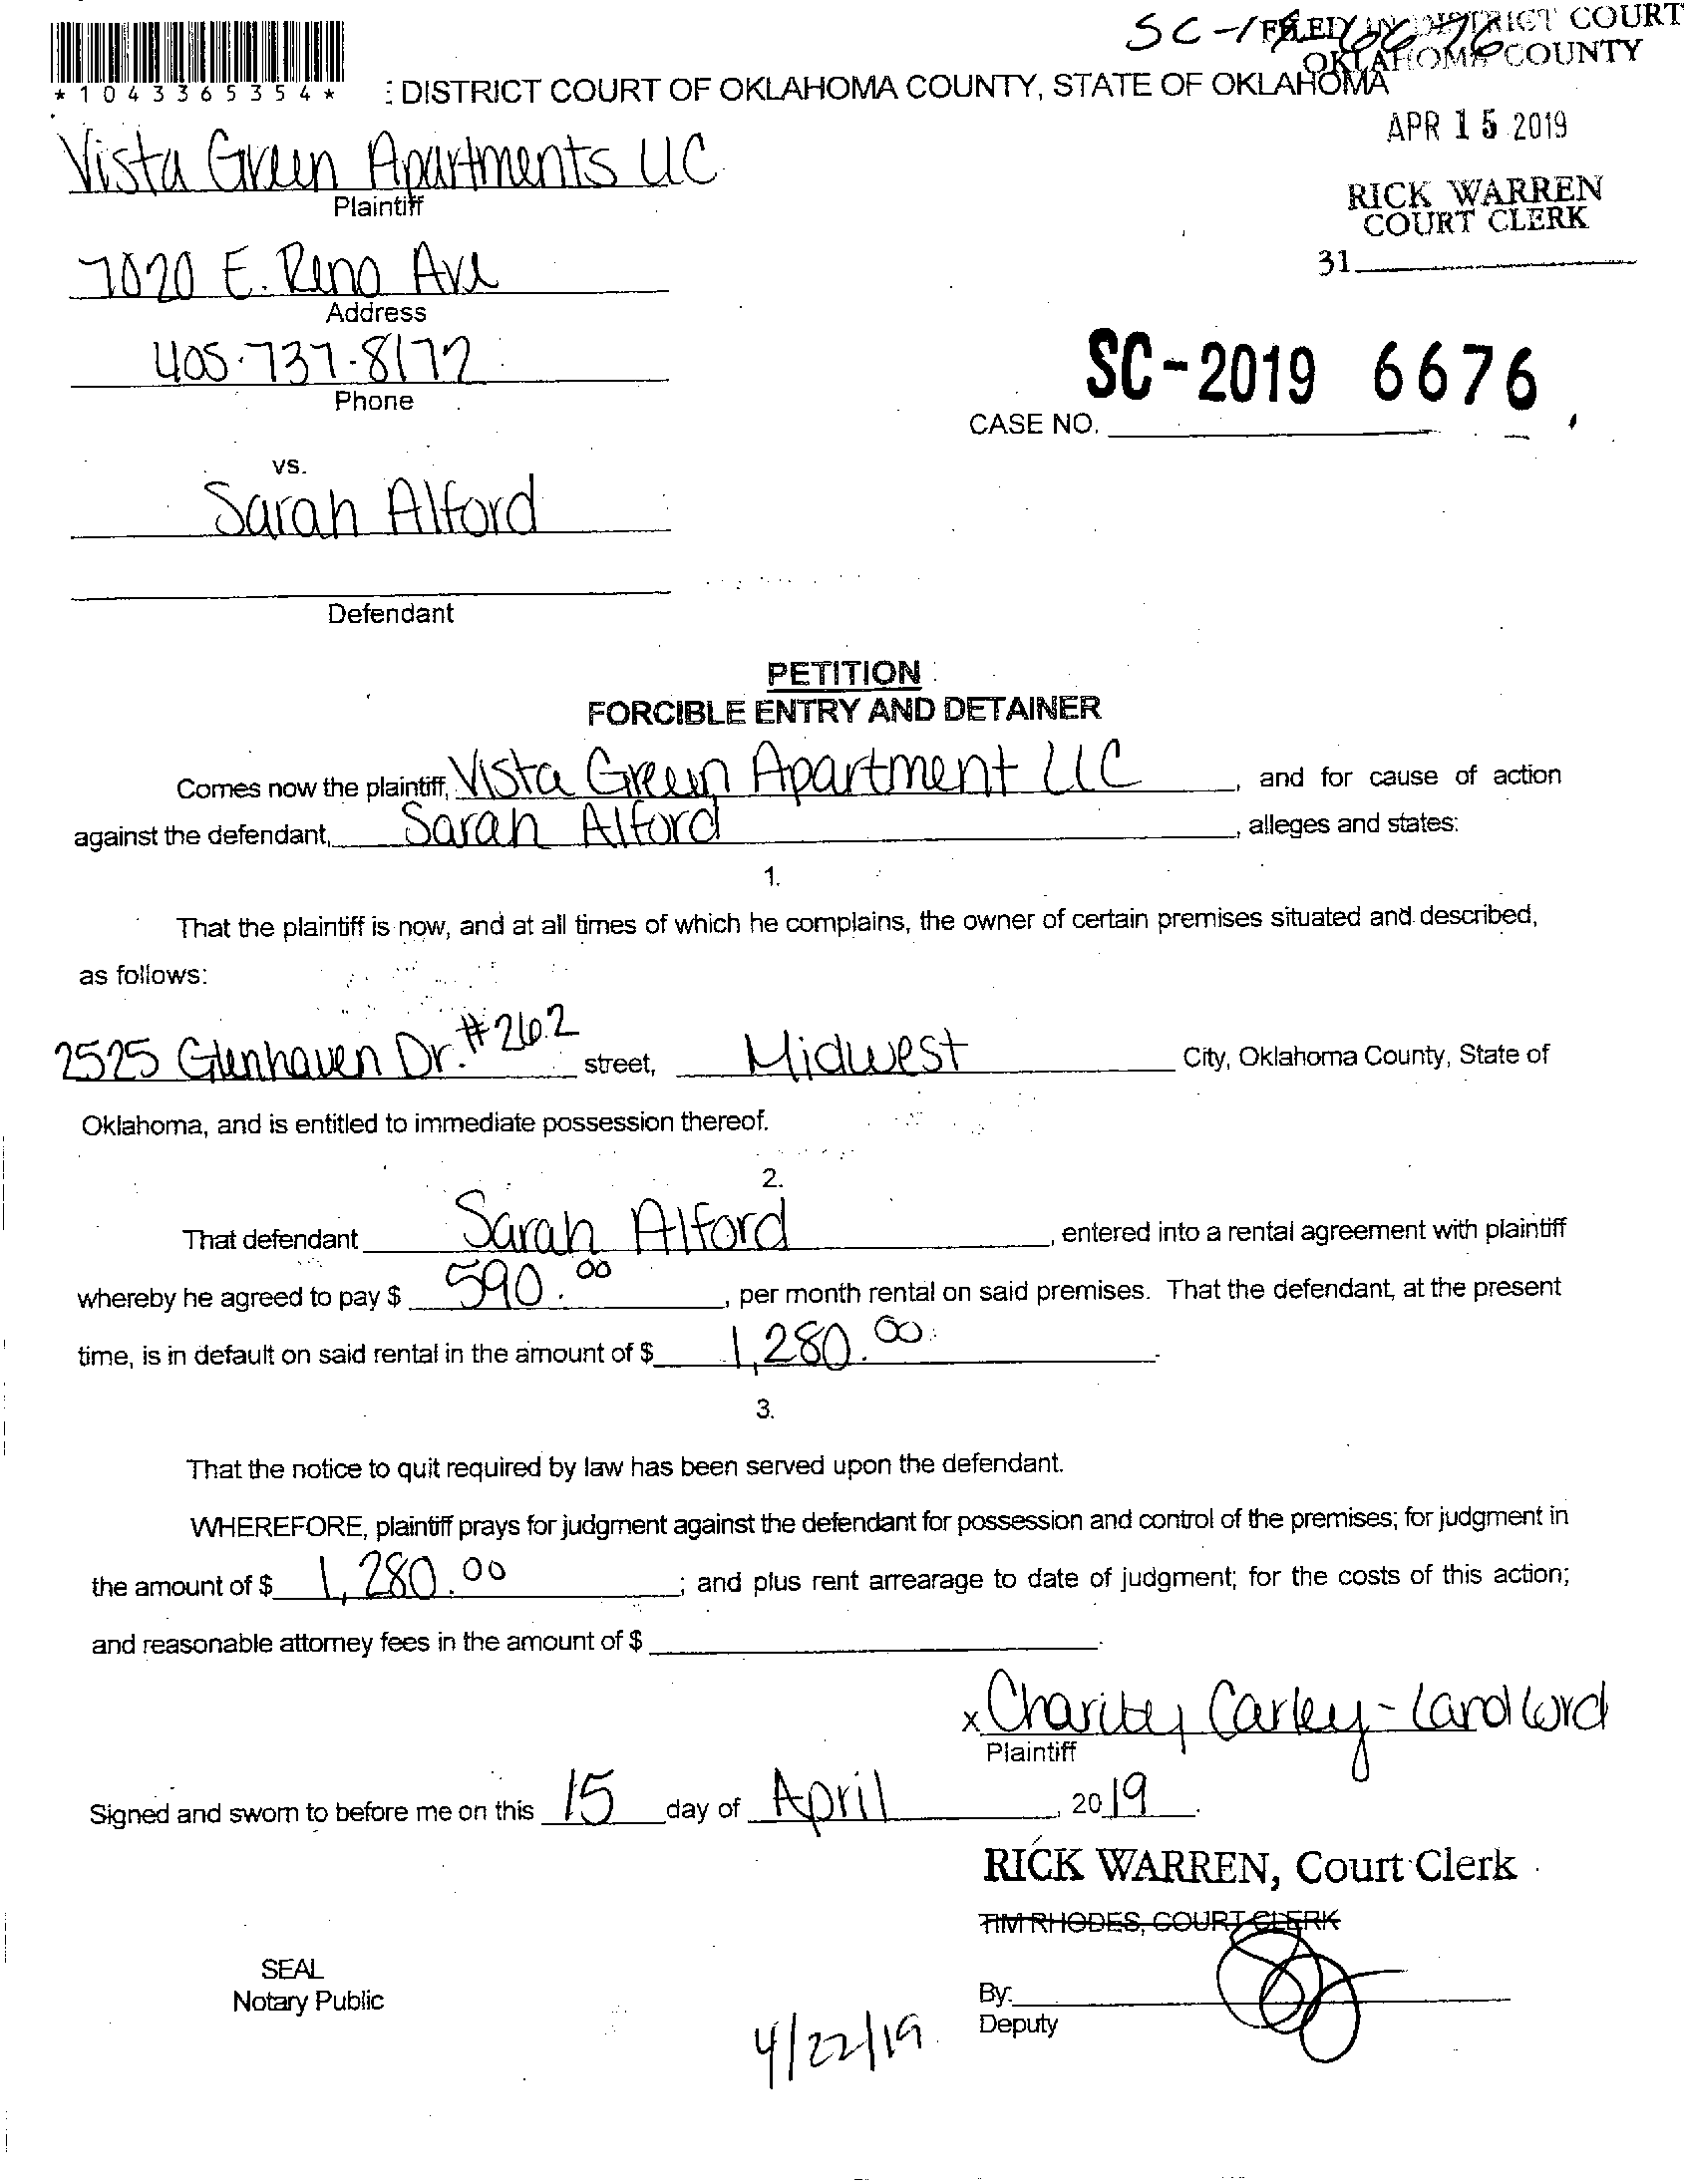 SC-19-6676
FILED IN DISTRICT COURT
OKLAHOMA COUNTY
*1043365354*
: DISTRICT COURT OF OKLAHOMA COUNTY, STATE OF OKLAHOMA
APR 15 2019
Vista Green Apartments LLC
Plaintiff
RICK WARREN
COURT CLERK
31
7020 E. Reno Ave
Address
405-737-8172
Phone
SC-2019 6676
CASE NO.
vs.
Sarah Alford
Defendant
PETITION
FORCIBLE ENTRY AND DETAINER
Comes now the plaintiff, Vista Green Apartment LLC, and for cause of action
against the defendant, Sarah Alford, alleges and states:
1.
That the plaintiff is now, and at all times of which he complains, the owner of certain premises situated and described,
as follows:
2525 Glenhaven Dr. #262 street, Midwest City, Oklahoma County, State of
Oklahoma, and is entitled to immediate possession thereof.
2.
That defendant Sarah Alford, entered into a rental agreement with plaintiff
whereby he agreed to pay $ 590.00, per month rental on said premises. That the defendant, at the present
time, is in default on said rental in the amount of $ 1,280.00.
3.
That the notice to quit required by law has been served upon the defendant.
WHEREFORE, plaintiff prays for judgment against the defendant for possession and control of the premises; for judgment in
the amount of $ 1,280.00; and plus rent arrearage to date of judgment; for the costs of this action;
and reasonable attorney fees in the amount of $
x Charity Carley-Landlord
Plaintiff
Signed and sworn to before me on this 15 day of April, 2019.
RICK WARREN, Court Clerk
TIM RHODES, COURT CLERK
SEAL
Notary Public
By:
Deputy
4/22/19